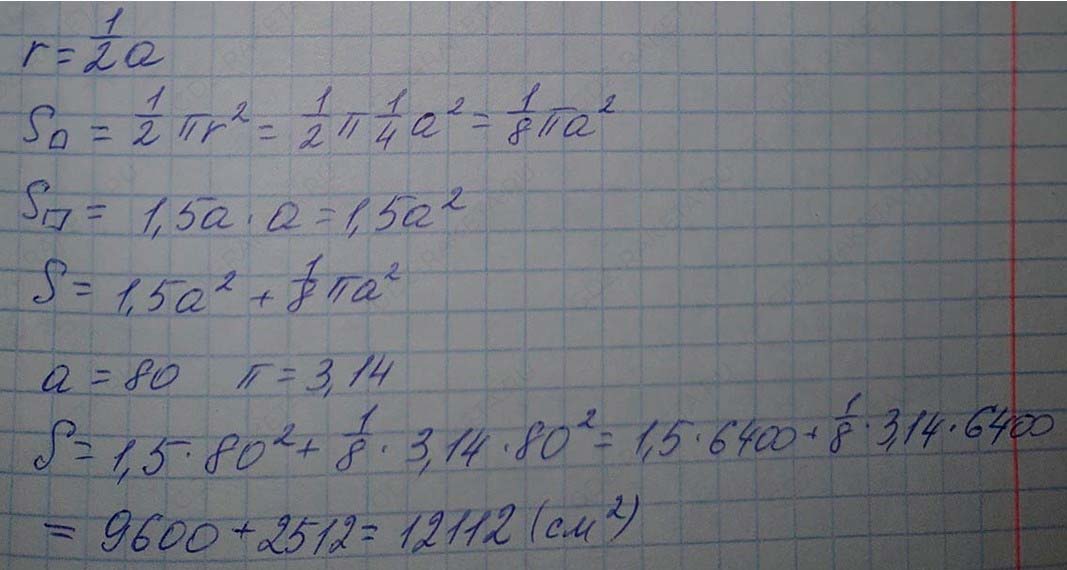 r = 1/2 a
S⌓ = 1/2 πr² = 1/2 π 1/4 a² = 1/8 πa²
S▭ = 1,5a · a = 1,5a²
S = 1,5a² + 1/8 πa²
a = 80 π = 3,14
S = 1,5 · 80² + 1/8 · 3,14 · 80² = 1,5 · 6400 + 1/8 · 3,14 · 6400
= 9600 + 2512 = 12112 (см²)